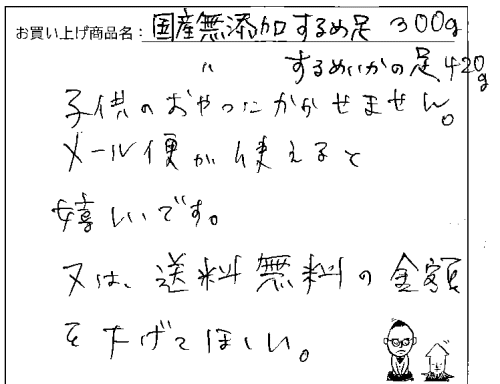 お買い上げ商品名：国産無添加するめ足 300g
〃 するめいかの足420g
子供のおやつにかかせません。
メール便が使えると
嬉しいです。
又は、送料無料の金額
を下げてほしい。